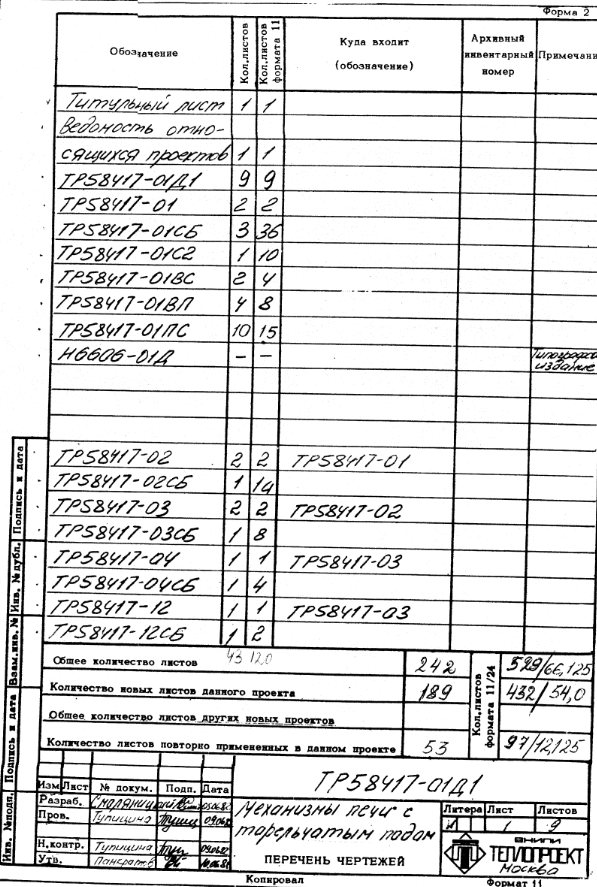 Форма 2
Обозначение Кол.листов Кол.листов формата 11 Куда входит (обозначение) Архивный инвентарный номер Примечани
Титульный лист 1 1
Ведомость отно-
сящихся проектов 1 1
ТР58417-01Д1 9 9
ТР58417-01 2 2
ТР58417-01СБ 3 36
ТР58417-01С2 1 10
ТР58417-01ВС 2 4
ТР58417-01ВП 4 8
ТР58417-01ПС 10 15
Н6606-01Д — — издание
ТР58417-02 2 2 ТР58417-01
ТР58417-02СБ 1 14
ТР58417-03 2 2 ТР58417-02
ТР58417-03СБ 1 8
ТР58417-04 1 1 ТР58417-03
ТР58417-04СБ 1 4
ТР58417-12 1 1 ТР58417-03
ТР58417-12СБ 1 2
43 120
Общее количество листов 242 Кол.листов формата 11/24 529/66,125
Количество новых листов данного проекта 189 432/54,0
Общее количество листов других новых проектов
Количество листов повторно примененных в данном проекте 53 97/12,125
Инв. №подл. Подпись и дата Взам.инв. № Инв. №дубл. Подпись и дата
ТР58417-01Д1
Изм Лист № докум. Подп. Дата
Разраб.
Пров. Тупицина
Н.контр. Тупицина
Утв.
Механизмы печи с
тарельчатым подом
ПЕРЕЧЕНЬ ЧЕРТЕЖЕЙ
Литера Лист Листов
1 9
ВНИПИ
ТЕПЛОПРОЕКТ
Москва
Копировал Формат 11